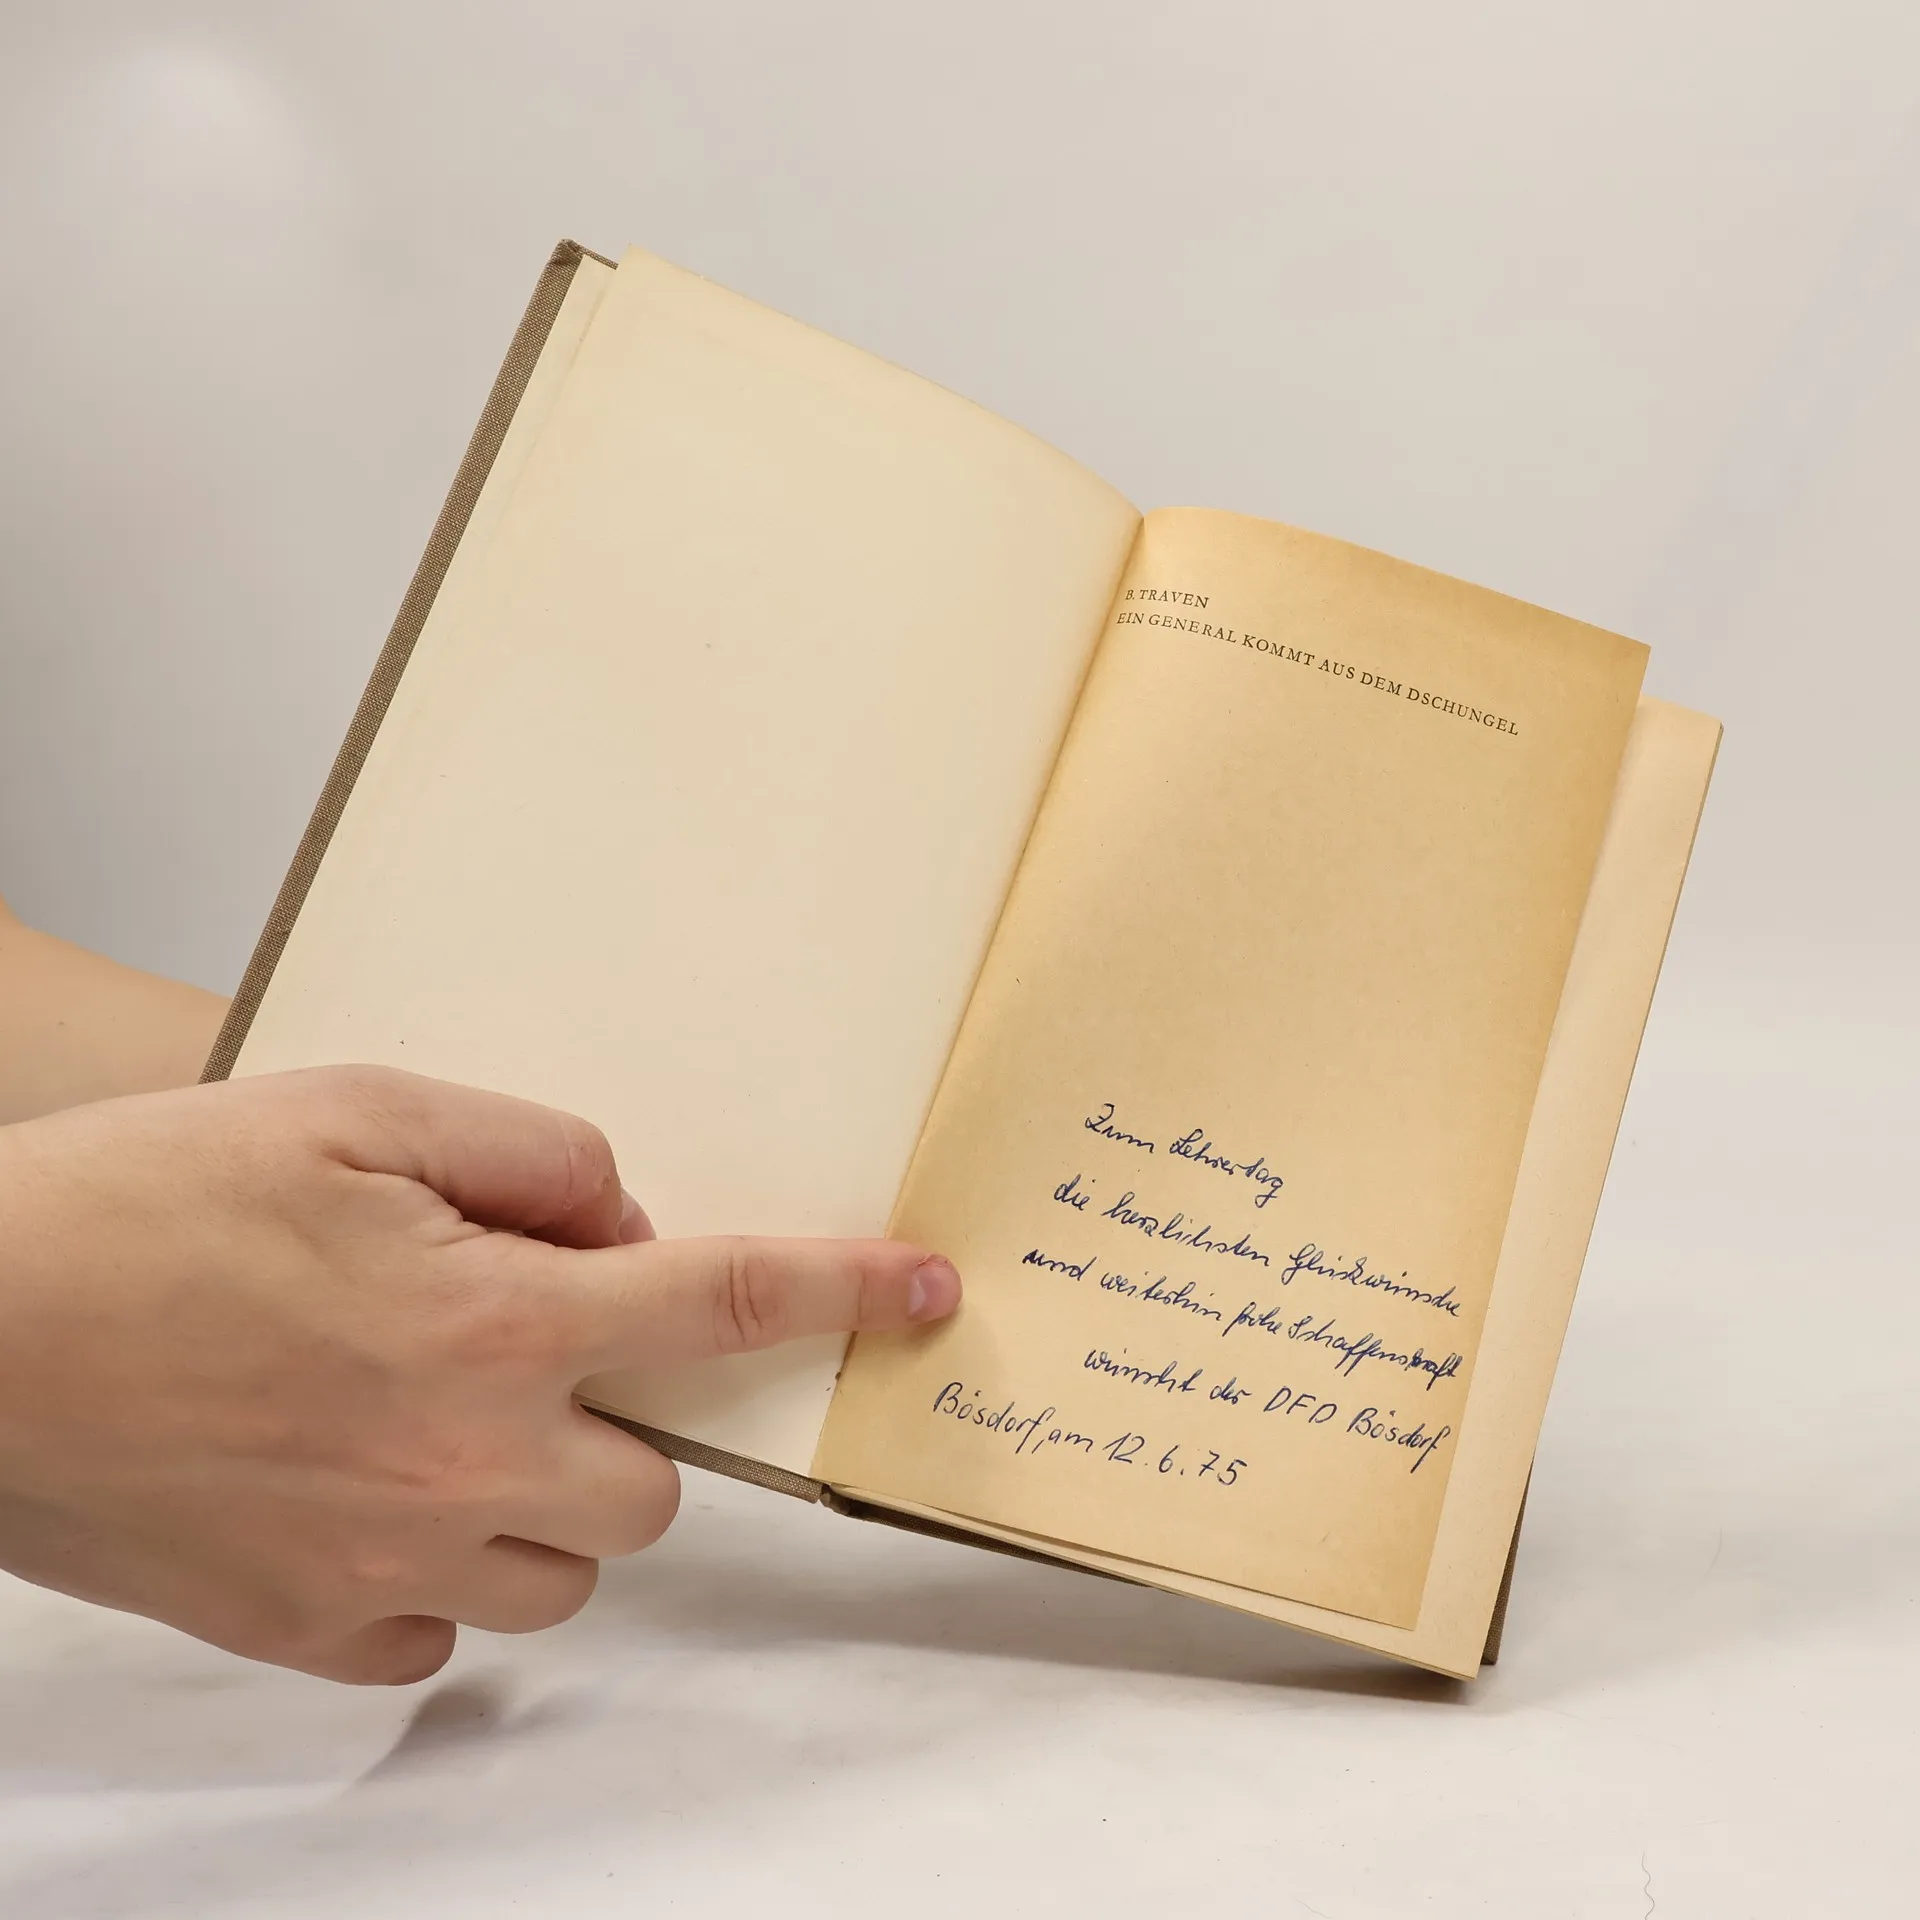 B. TRAVEN
EIN GENERAL KOMMT AUS DEM DSCHUNGEL
Zum Lehrertag
die herzlichsten Glückwünsche
und weiterhin frohe Schaffenskraft
wünscht der DFD Bösdorf
Bösdorf, am 12.6.75